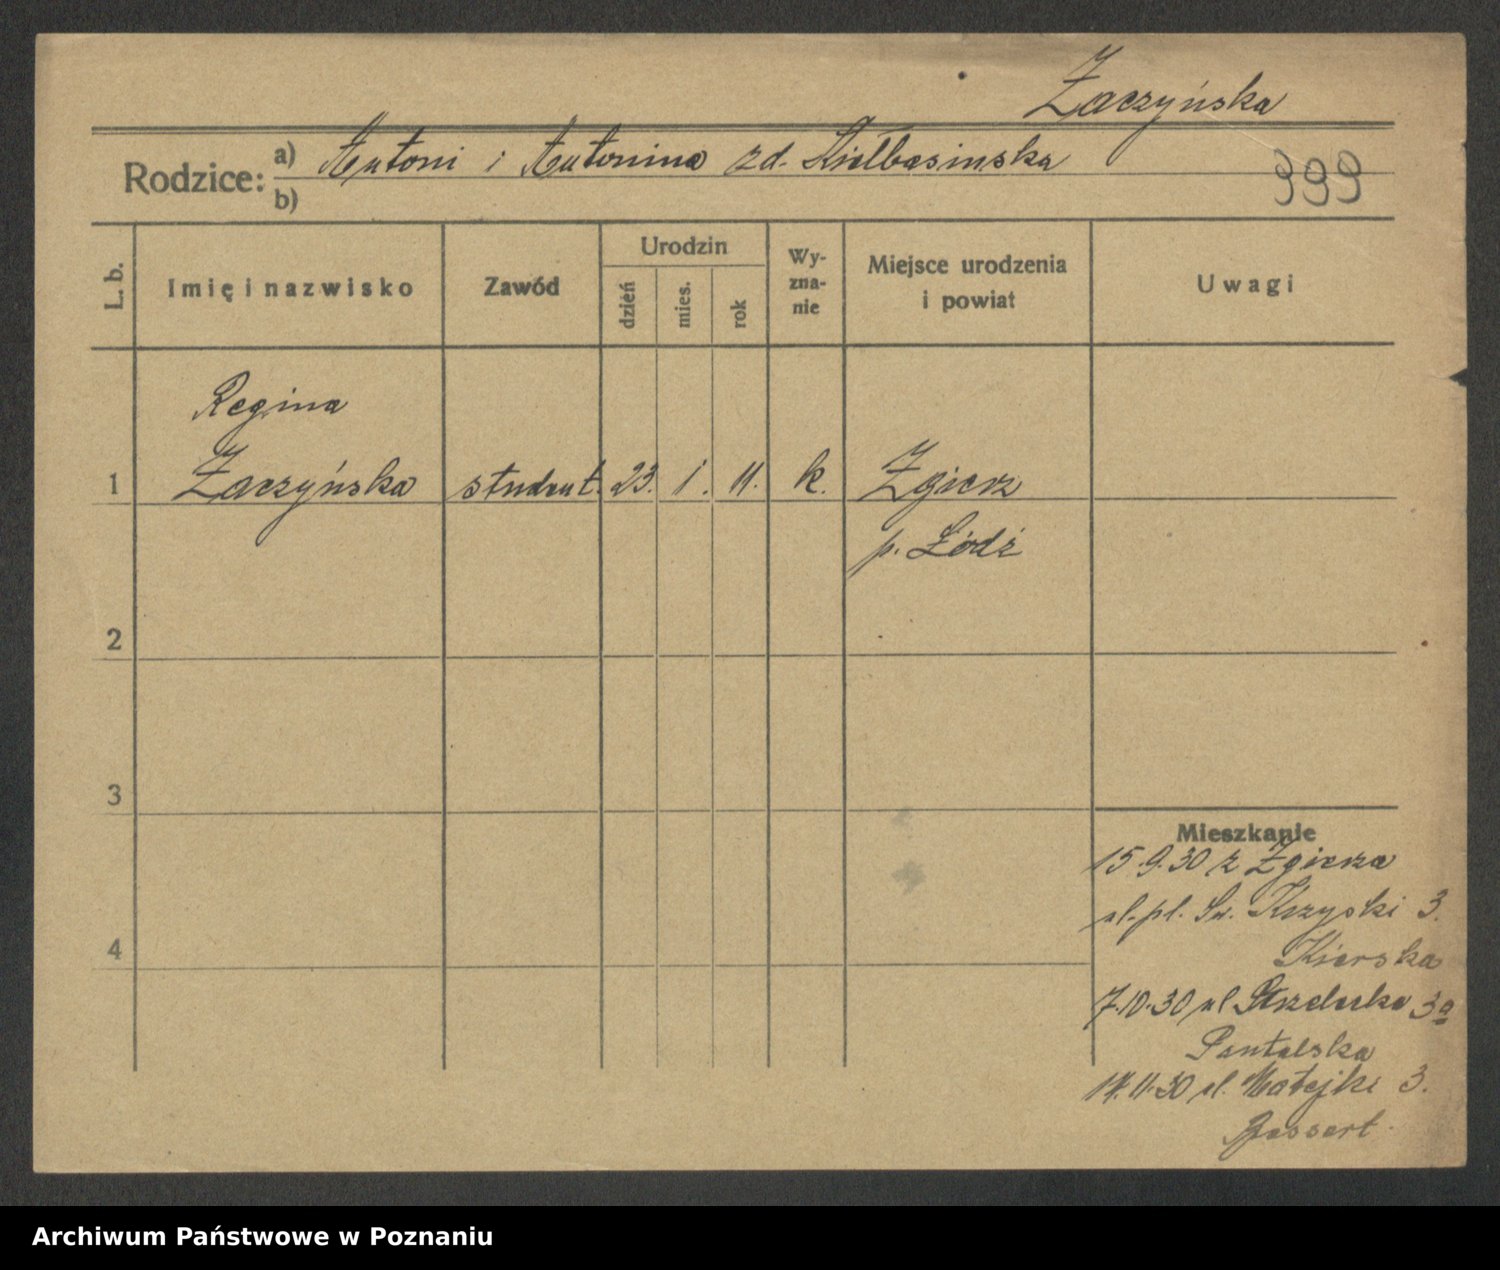 Zaczyńska
Rodzice: a) Antoni i Antonina zd. Kiełbasinska
b)
999
L. b.
Imię i nazwisko
Zawód
Urodzin
dzień
mies.
rok
Wy-
zna-
nie
Miejsce urodzenia
i powiat
Uwagi
Regina
1 Zaczyńska student. 23. 1. 11. k. Zgierz
p. Łódź
2
3
4
Mieszkanie
15.9.30 z Zgierza
ul. pl. Św. Krzyski 3.
Kierska
7.10.30 ul Strzelecka 3a
14.11.30 ul. Matejki 3.
Gessert
Archiwum Państwowe w Poznaniu